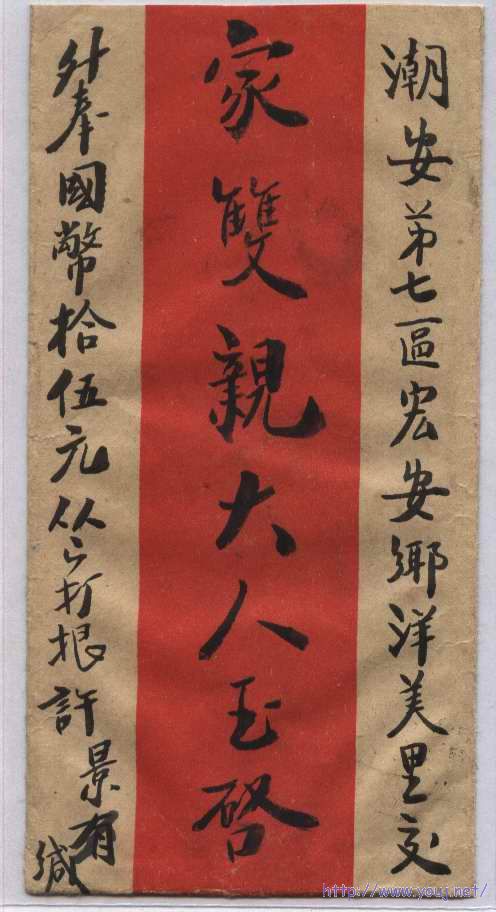 潮安第七區宏安鄉洋美里交
家雙親大人玉啓
外奉國幣拾伍元 許景有緘
http://www.youj.net/